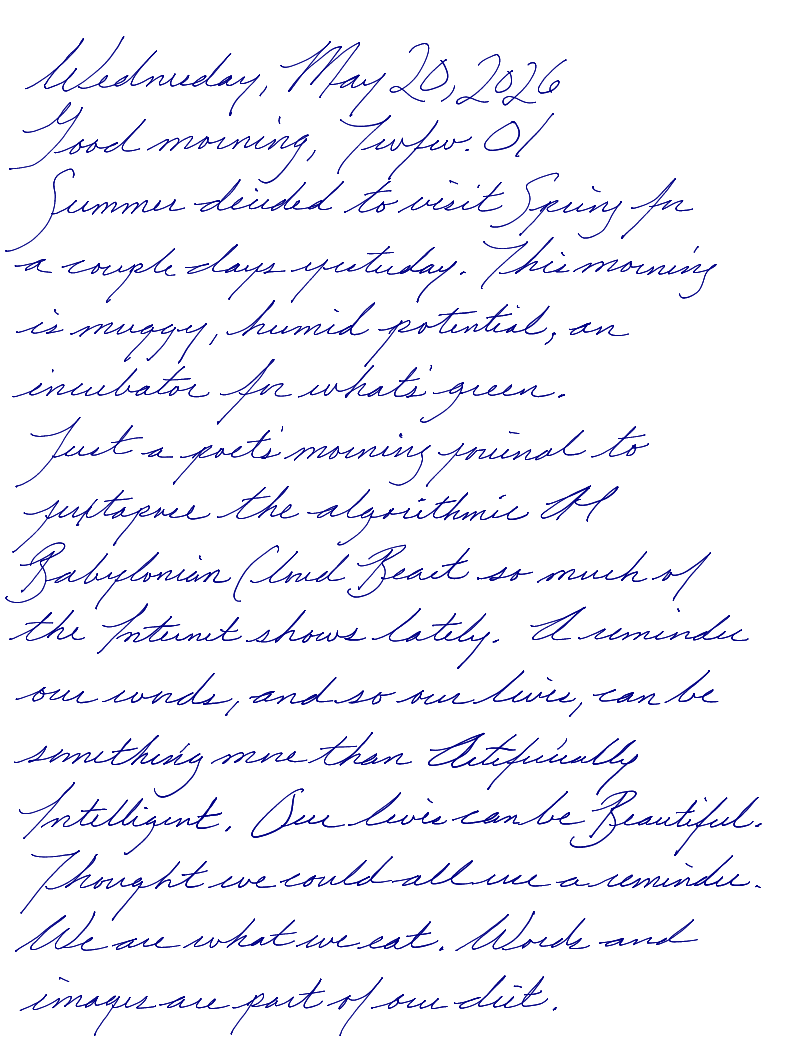 Wednesday, May 20, 2026
Good morning, Twfw. 01
Summer decided to visit Spring for
a couple days yesterday. This morning
is muggy, humid potential, an
incubator for what's green.
Just a poet's morning journal to
juxtapose the algorithmic AI
Babylonian Cloud Beast so much of
the Internet shows lately. A reminder
our words, and so our lives, can be
something more than Artificially
Intelligent. Our lives can be Beautiful.
Thought we could all use a reminder.
We are what we eat. Words and
images are part of our diet.